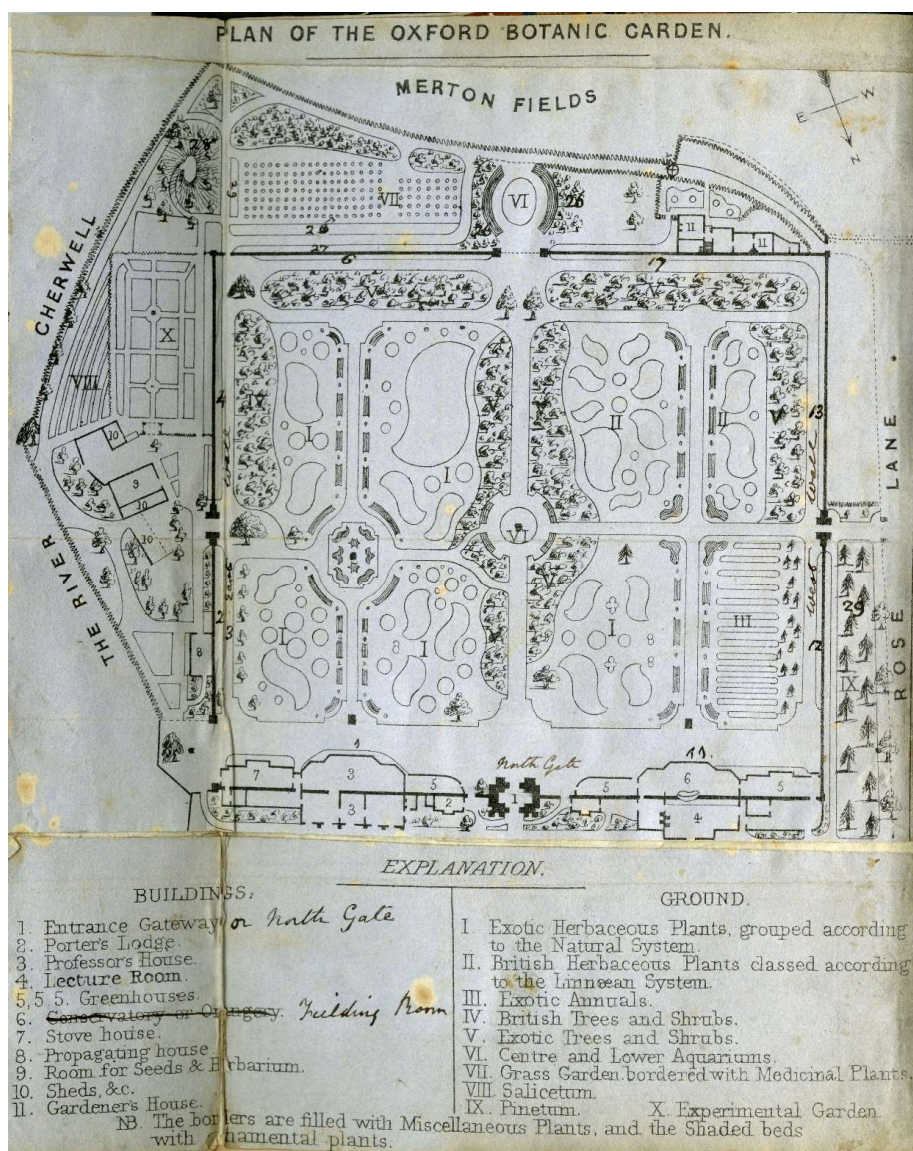 PLAN OF THE OXFORD BOTANIC GARDEN.
MERTON FIELDS
E W N
28
VII
9
26
27
6
26
VI
26
11
11
17
CHERWELL
X
VIII
4
V
V
I
I
II
II
V
13
wall
10
9
10
10
VI
V
THE RIVER
2
East
3
8
I
I
I
III
West
12
29
IX
ROSE LANE.
1
North Gate
11.
7
3
5
5
6
5
3
2
1
4
EXPLANATION.
BUILDINGS:
1. Entrance Gateway or North Gate
2. Porter's Lodge.
3. Professor's House.
4. Lecture Room.
5, 5. 5. Greenhouses.
6. Conservatory or Orangery. Fielding Room
7. Stove house.
8. Propagating house
9. Room for Seeds & Herbarium.
10. Sheds, &c.
11. Gardener's House.
GROUND.
I. Exotic Herbaceous Plants, grouped according
to the Natural System.
II. British Herbaceous Plants classed according
to the Linnœan System.
III. Exotic Annuals.
IV. British Trees and Shrubs.
V. Exotic Trees and Shrubs.
VI. Centre and Lower Aquariums.
VII. Grass Garden bordered with Medicinal Plants.
VIII. Salicetum.
IX. Pinetum. X. Experimental Garden
NB. The borders are filled with Miscellaneous Plants, and the Shaded beds
with Ornamental plants.